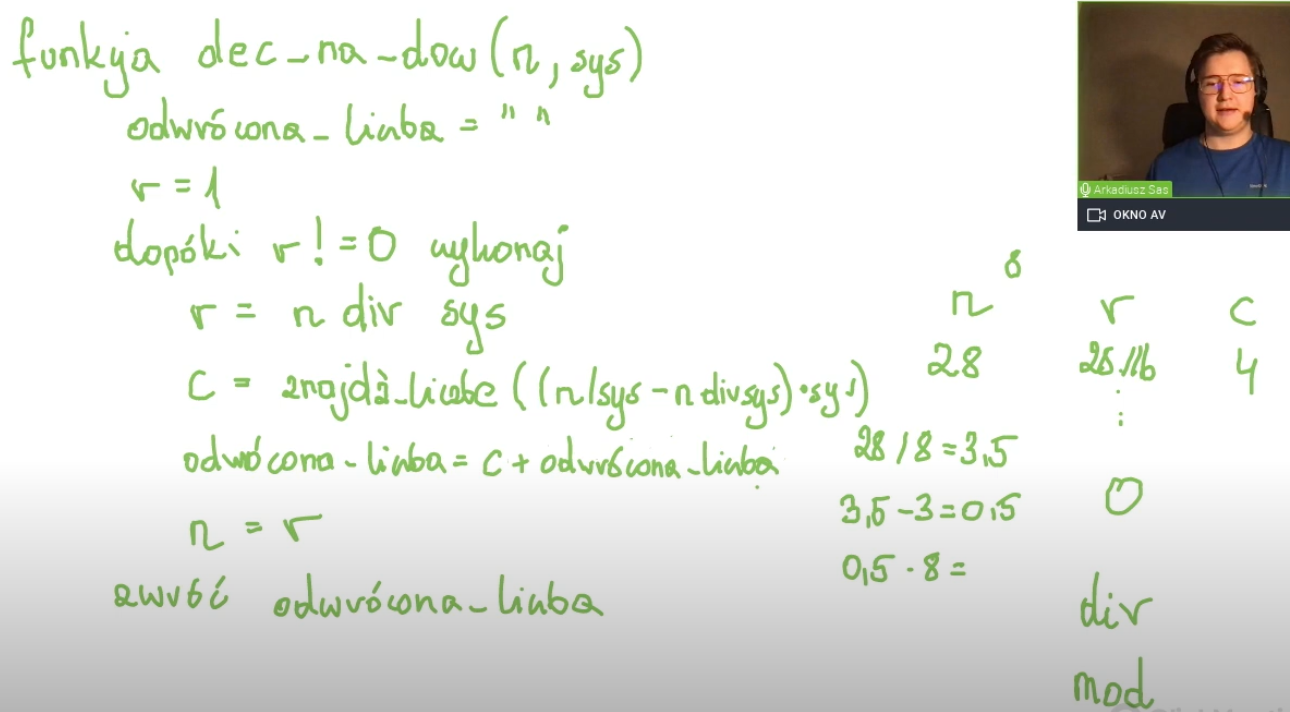 funkcja dec_na_dow(n, sys)
odwrócona_liczba = " "
r = 1
dopóki r != 0 wykonaj
r = n div sys
c = znajdź_liczbe((n/sys - n div sys) · sys)
odwrócona_liczba = c + odwrócona_liczba
n = r
zwróć odwrócona_liczba
8
n r c
28 28//16 4
:
28 / 8 = 3,5
3,5 - 3 = 0,5 0
0,5 · 8 =
div
mod
Arkadiusz Sas
OKNO AV